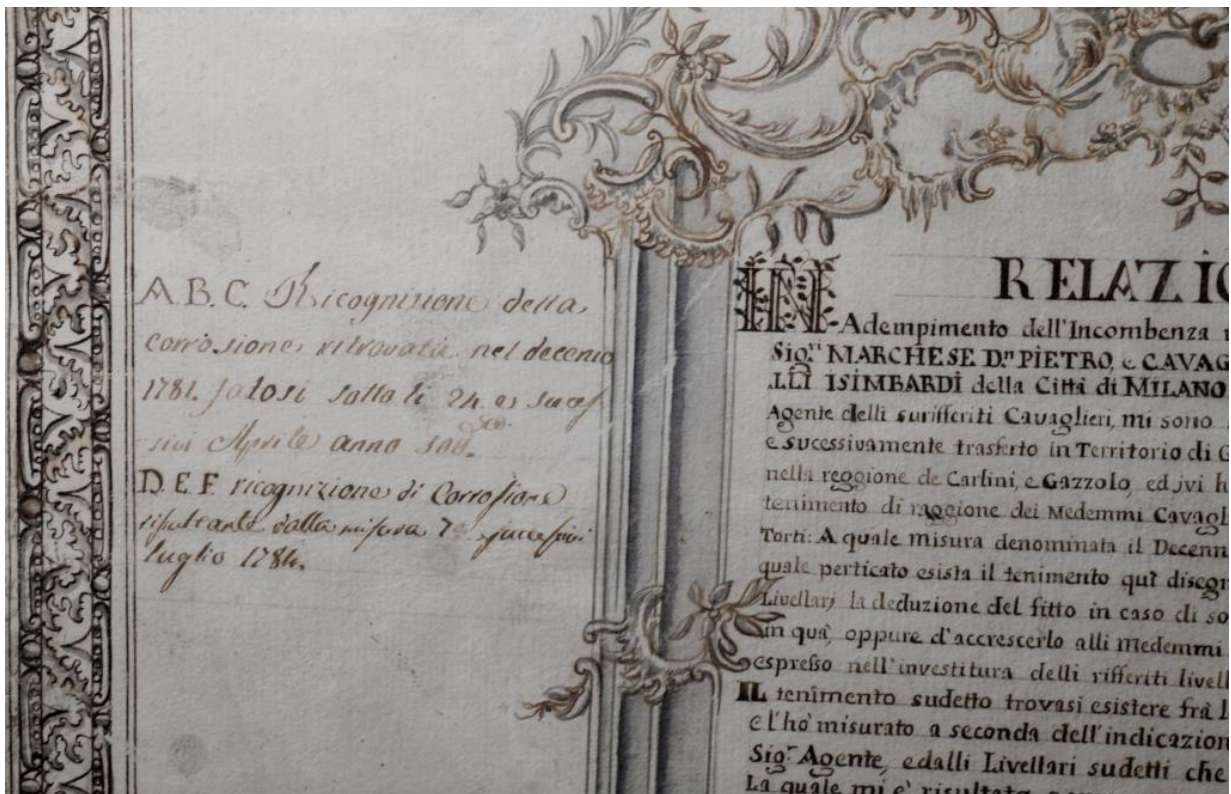 A. B. C. Ricognizione della
corrosione ritrovata nel decenio
1781. fatosi sotto li 24 e sucef-
sivi Aprile anno sod.º
D. E. F. ricognizione di Corrosione
risultante dalla misura 7e sucessivi
luglio 1784.
RELAZIO
IN Adempimento dell'Incombenza
Sig.ri MARCHESE D.n PIETRO, e CAVAG
LLI ISIMBARDI della Città di MILANO
Agente delli surifferiti Cavaglieri, mi sono
e sucessivamente trasferto in Territorio di G
nella reggione de Carlini, e Gazzolo, ed jvi h
tenimento di raggione dei Medemmi Cavagl
Torti: A quale misura denominata il Decenn
quale perticato esista il tenimento qui disegn
Livellarj la deduzione del fitto in caso di so
in quà, oppure d'accrescerlo alli medemmi
espresso nell'investitura delli rifferiti livell
IL tenimento sudetto trovasi esistere frà l
e l'hò misurato a seconda dell'indicazion
Sig.r Agente, edalli Livellari sudetti che
La quale mi è risultata